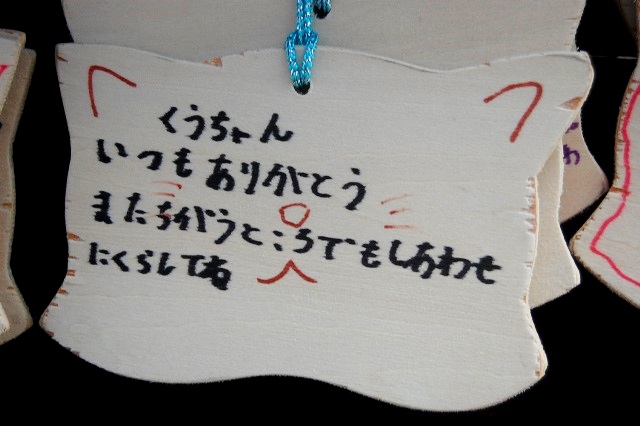 くうちゃん
いつもありがとう
またちがうところでもしあわせ
にくらしてね